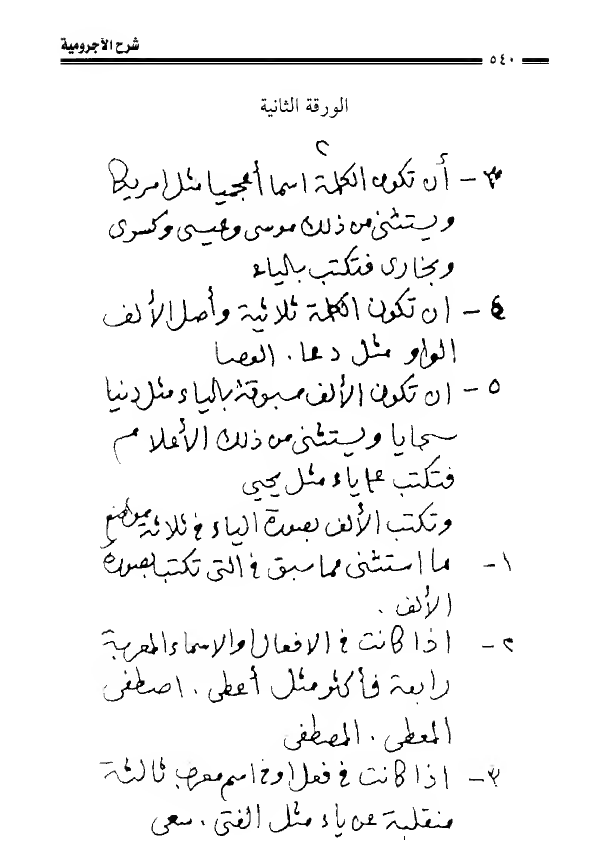 شرح الآجرومية
٥٤٠
الورقة الثانية
٢
٣- أن تكون الكلمة اسما أعجميا مثل امريكا
ويستثنى من ذلك موسى وعيسى وكسرى
وبخارى فتكتب بالياء
٤- ان تكون الكلمة ثلاثية وأصل الألف
الواو مثل دعا . العصا
٥- ان تكون الألف مسبوقة بالياء مثل دنيا
سجايا ويستثنى من ذلك الأعلام
فتكتب ياء مثل يحيى
وتكتب الألف بصورة الياء في ثلاثة مواضع
١- ما استثنى مما سبق في التى تكتب بصورة
الألف .
٢- اذا كانت في الافعال والاسماء المعربة
رابعة فأكثر مثل أعطى . اصطفى
المعطى . المصطفى
٣- اذا كانت في فعل او في اسم معرب ثالثة
منقلبة عن ياء مثل الفتى . سعى